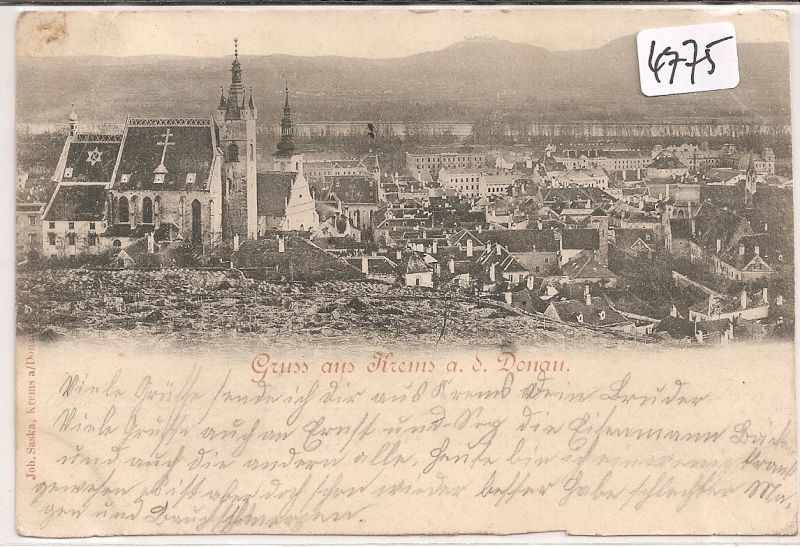 4775
Gruss aus Krems a. d. Donau.
Joh. Saska, Krems a/Donau
Viele Grüsse sende ich dir aus Krems Dein Bruder
Viele Grüsse auch an Ernst und Sep die Eisermann
und auch die andern alle. Heute bin ich ein wenig krank
gewesen es ist aber doch schon wieder besser habe schlechter Ma-
gen und Bauchschmerzen